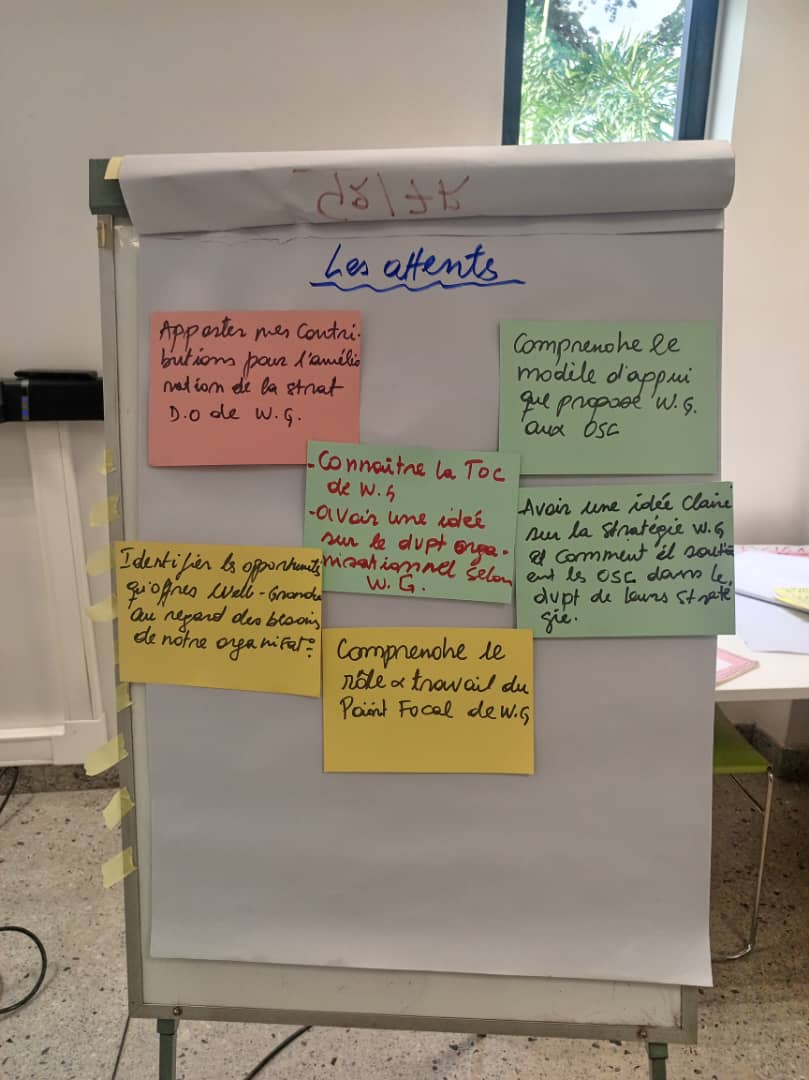 Les attents
Apporter mes Contri-
butions pour l'amélio
ration de la strat
D.O de W.G.
Comprendre le
modèle d'appui
que propose W.G.
aux OSC
-Connaître la TOC
de W.G
-avoir une ideé
sur le dvpt orga-
nisationnel selon
W.G.
Avoir une idée Claire
sur la stratégie W.G
et comment il soutie
ent les OSC dans le
dvpt de leurs straté
gie.
Identifier les opportunités
qu'offres Well-Grounded
au regard des besoins
de notre organisat°
Comprendre le
rôle & travail du
Point Focal de W.G